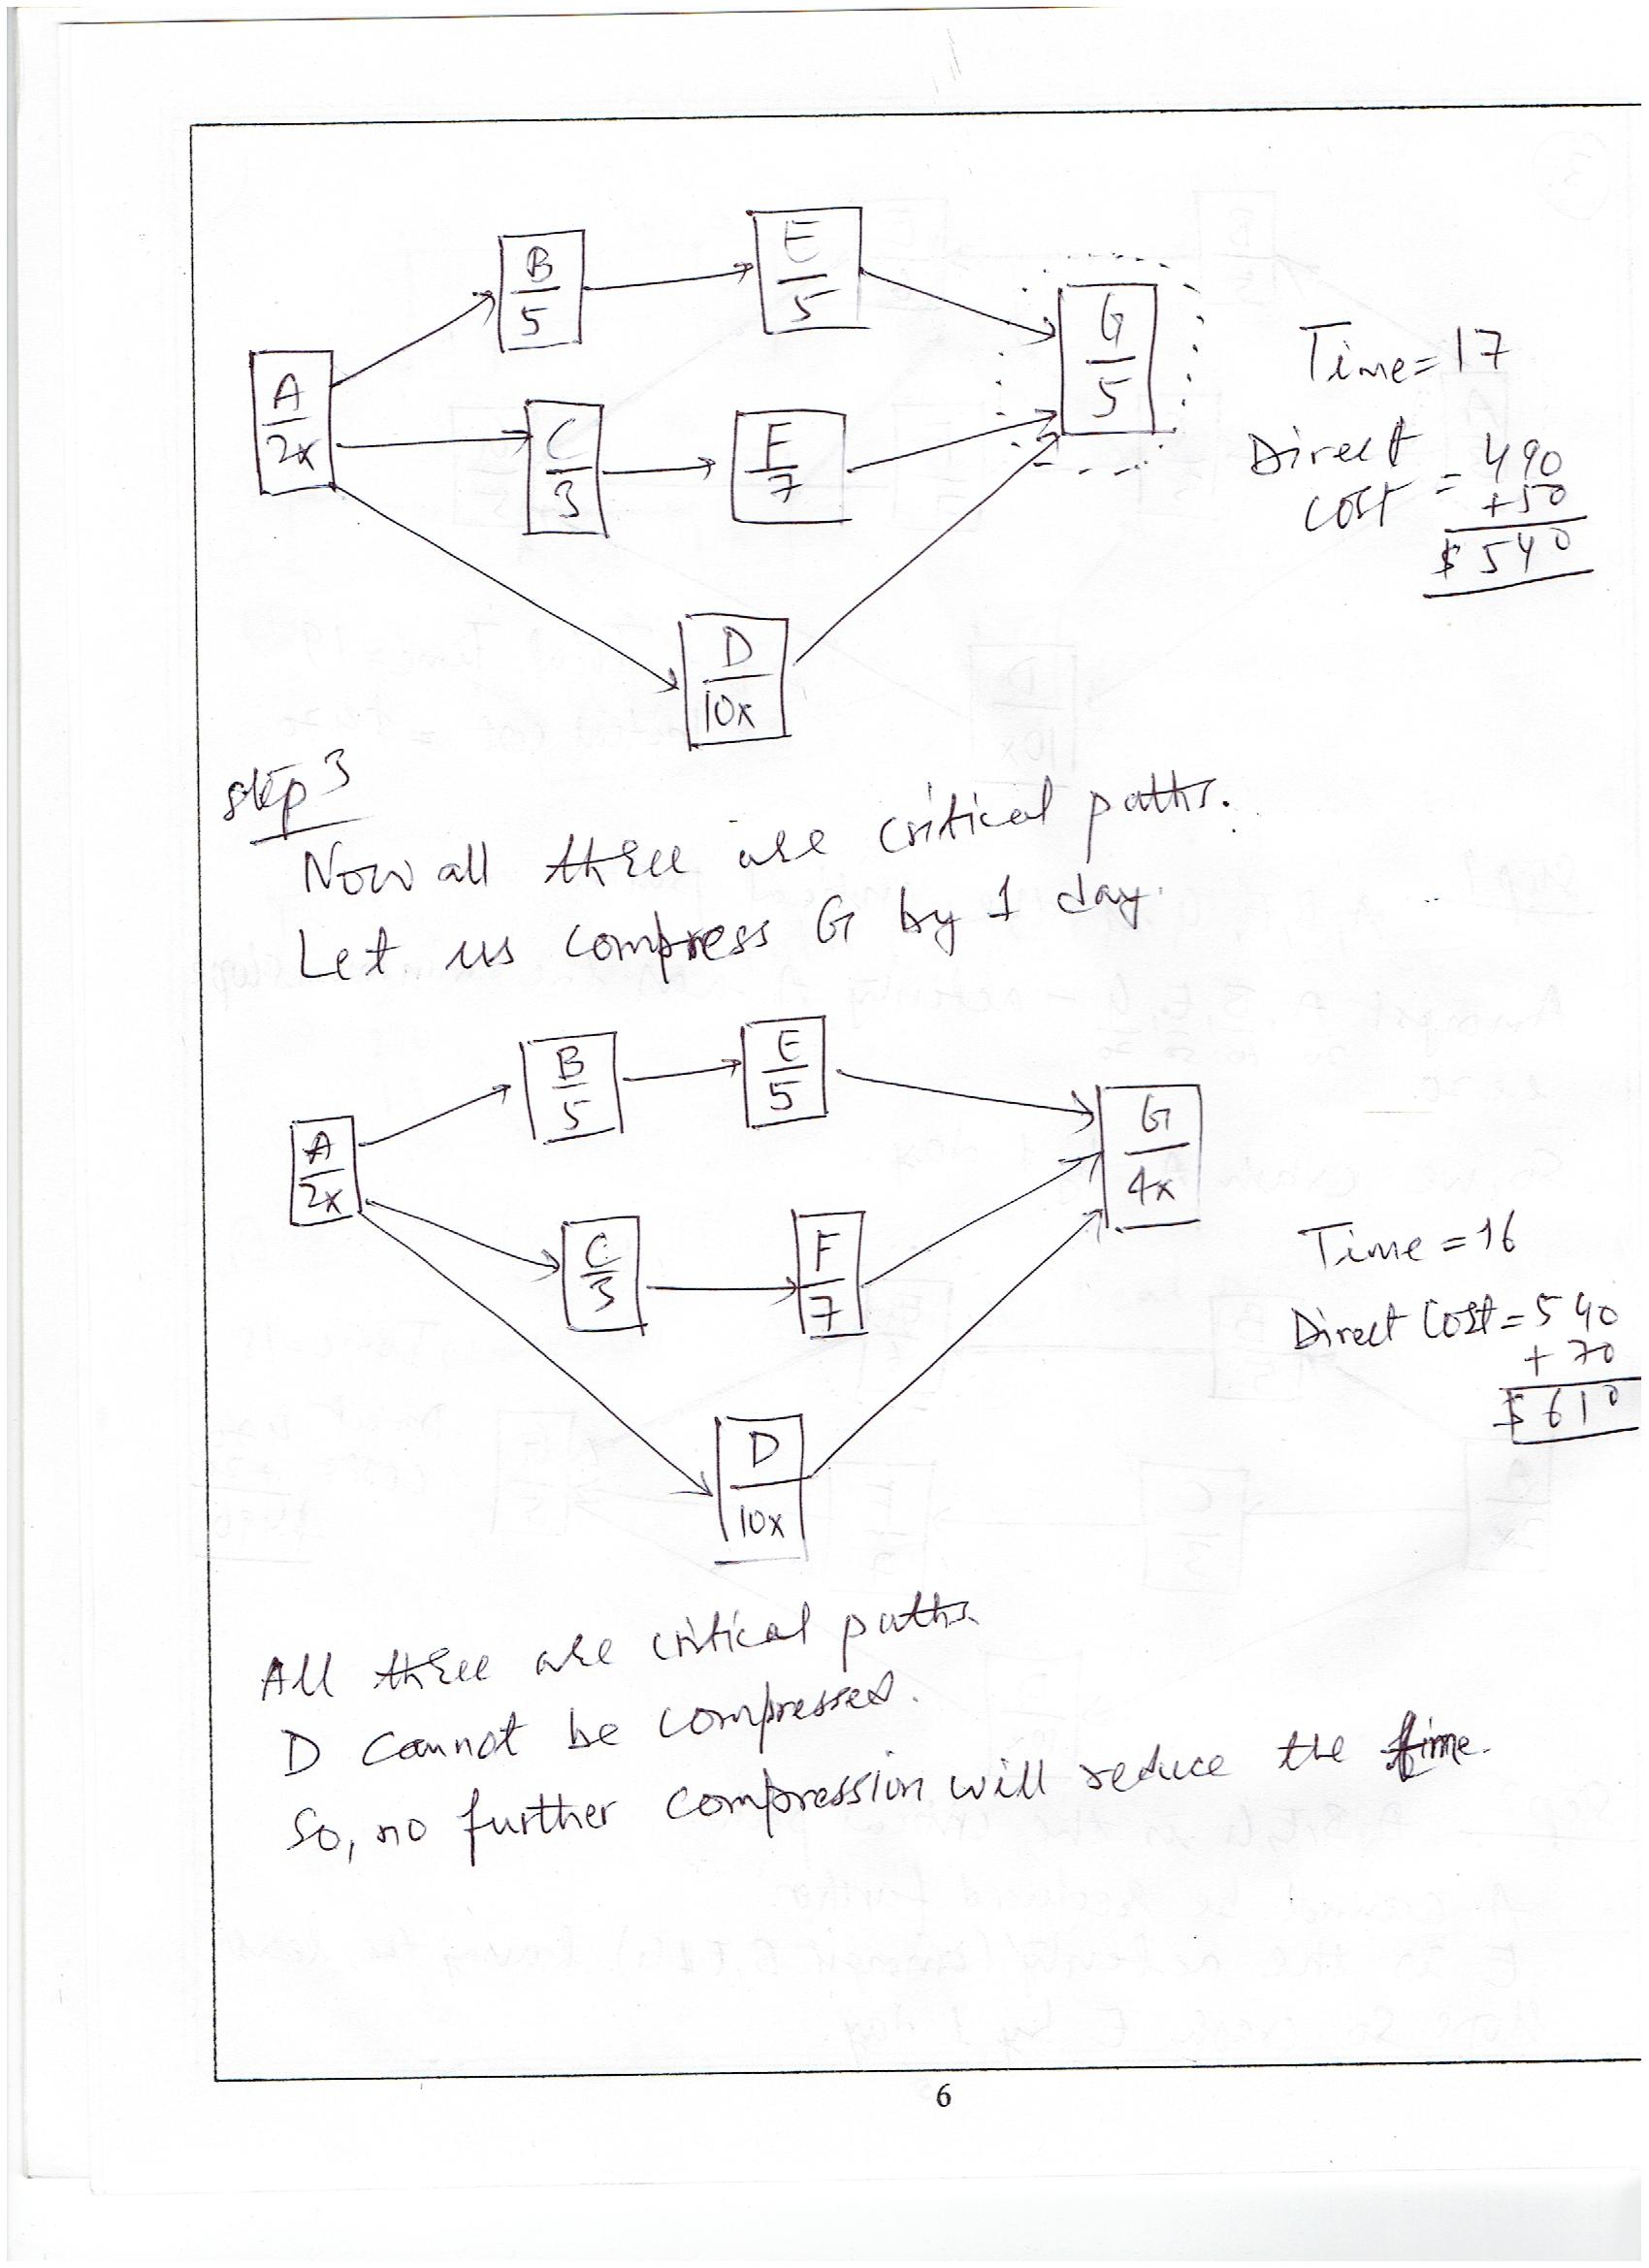 E
5
B
5
G
5
A
2x
C
3
F
7
Time = 17
Direct
cost = 490
+50
$540
D
10x
step 3
Now all three are critical paths.
Let us compress G by 1 day.
B
5
E
5
G
4x
A
2x
C
3
F
7
Time = 16
Direct Cost = 540
+ 70
$610
D
10x
All three are critical paths.
D cannot be compressed.
So, no further compression will reduce the time.
6